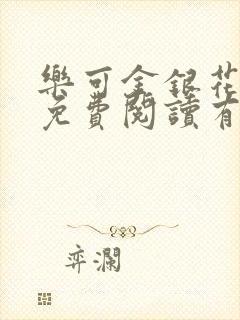 樂可金銀花
免費閱讀有
弈瀾